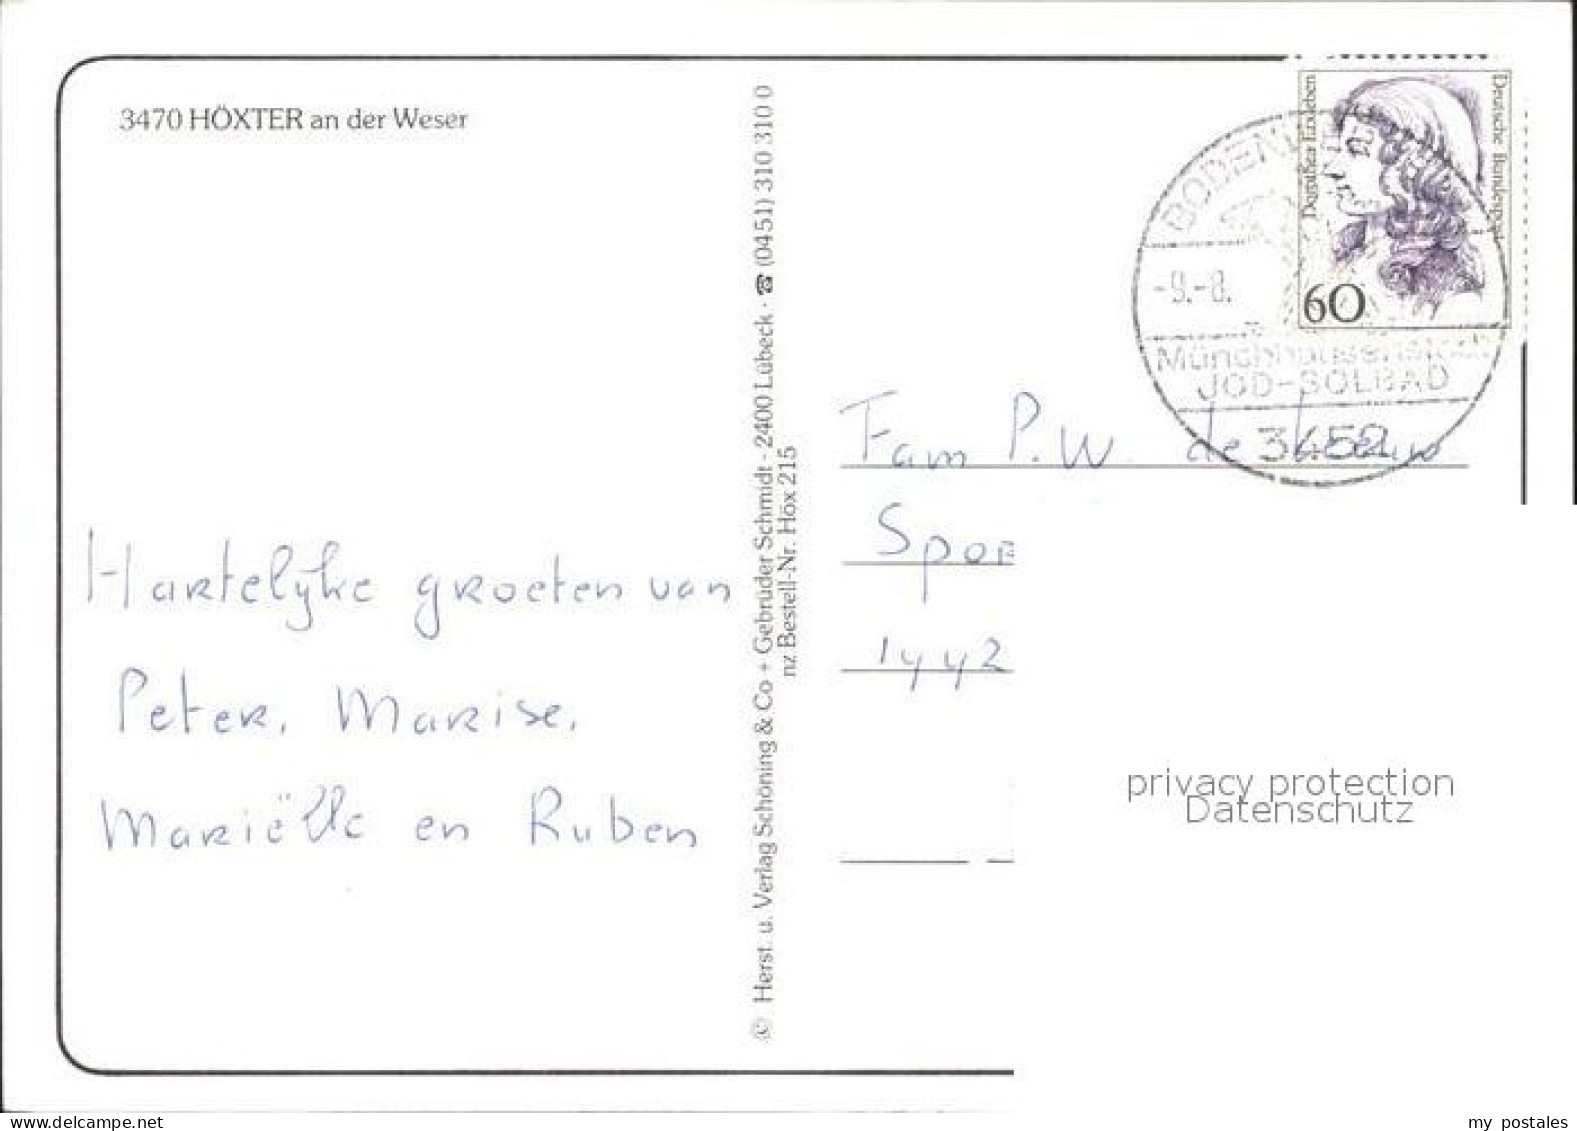 3470 HÖXTER an der Weser
Hartelyke groeten van
Peter, Marise,
Mariëlle en Ruben
© Herst. u. Verlag Schöning & Co + Gebrüder Schmidt · 2400 Lübeck · ☎ (0451) 310 310 0
nz Bestell-Nr. Höx 215
Dorothea Erxleben
Deutsche Bundespost
60
-9.-8.
JOD-SOLBAD
3452
Fam P.W. de Leeuw
Spor
1442
privacy protection
Datenschutz
www.delcampe.net
my postales